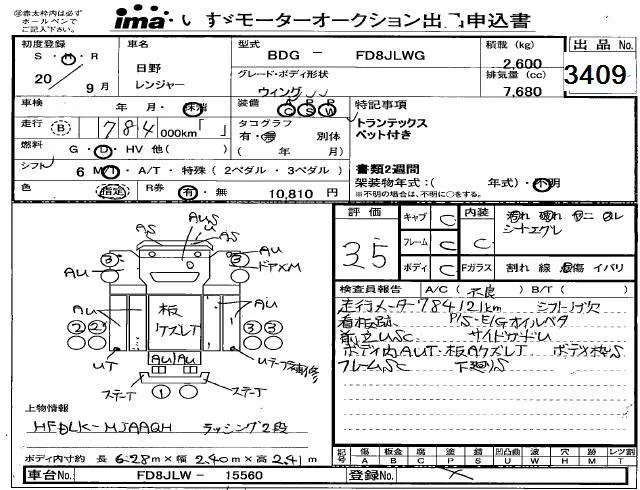 ※赤太枠内は必ず
ボールペンで
ご記入下さい。
ima いすゞモーターオークション出品申込書
初度登録
S・H・R
20 9月
車名
日野
レンジャー
型式
BDG － FD8JLWG
グレード・ボディ形状
ウィング
積載 (kg)
2,600
排気量 (cc)
7,680
出品 No.
3409
車検 年 月・抹消
装備 A/C P/S P/W
走行 (B) 784 000km「 」
タコグラフ
有・無 別体
( 年 月)
燃料 G・D・HV 他( )
シフト 6 M/T・A/T・特殊 (2ペダル・3ペダル)
色 指定 R券 有・無 10,810 円
特記事項
トランテックス
ベット付き
書類2週間
架装物年式:( 年式)・不明
※不明の場合は、不明に○をする。
評価 35
キャブ C
フレーム C
ボディ C
内装 C
Fガラス 割れ 線 点傷 イバリ
検査員報告 A/C( 不良 ) B/T( )
走行メーター784121km シフトノブ欠
看板跡 P/S・E/Gオイルベタ
前立USC サイドガードU
ボディ内AUT・板AケズレT
フレームSC 下廻りS
AUS
U
AS
AS
AU
AU
ドアXM
3
3
AU
AU
板
ケズレT
2 2
3 3
AU AU
UT
ステーT
ステーT
1
上物情報
HFDLK-MJAAQH ラッシング2段
ボディ内寸約 長 6.28m × 幅 2.40m × 高 2.41m
記号
傷 A
鈑金 B
腐 C
塗 P
錆 S
凹凸曲 U
波 W
穴 H
跡 M
レツ割 T
車台No. FD8JLW - 15560
登録No.